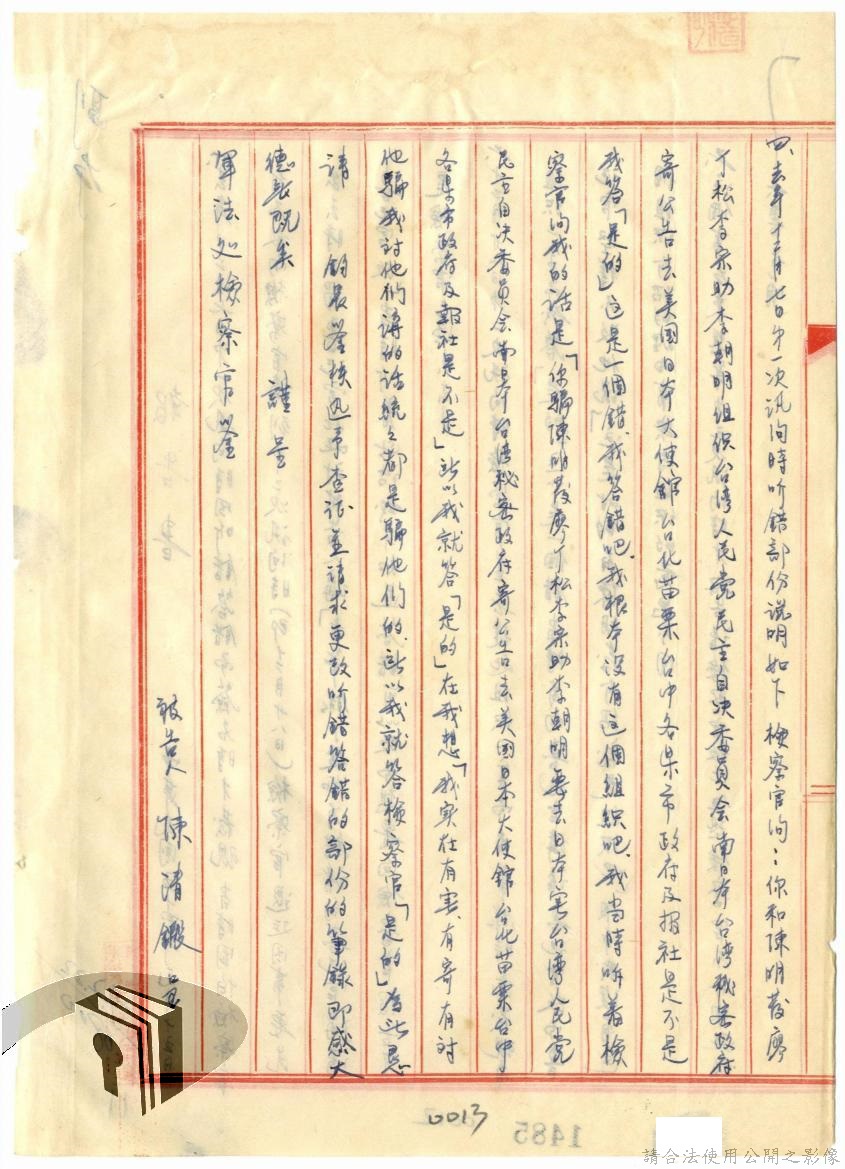 四、去年十二月七日第一次訊问時听錯部份說明如下 檢察官问：你和陳明發廖
丁松李宗助李朝明組织台湾人民党民主自决委員会南日本台湾秘密政府
寄公告去美国日本大使館台北苗栗台中各県市政府及报社是不是
我答「是的」這是一個錯、我答錯吧、我根本没有这個組織吧、我当時听着檢
察官问我的话是「你騙陳明發廖丁松李宗助李朝明要去日本寄台湾人民党
民主自决委員会南日本台湾秘密政府寄公告去美国日本大使館台北苗栗台中
各県市政府及報社是不是」所以我就答「是的」在我想「我实在有寄、有寄有討
他騙我討他们講的话統々都是騙他们的、所以我就答檢察官「是的」為此恳
請 鈞長鉴核迅予查証並請求更改听错答错的部份的筆錄即感大
德長既矣 謹呈
軍法处檢察官鉴
被告人 陳清鍛 呈
0013
1485
請合法使用公開之影像